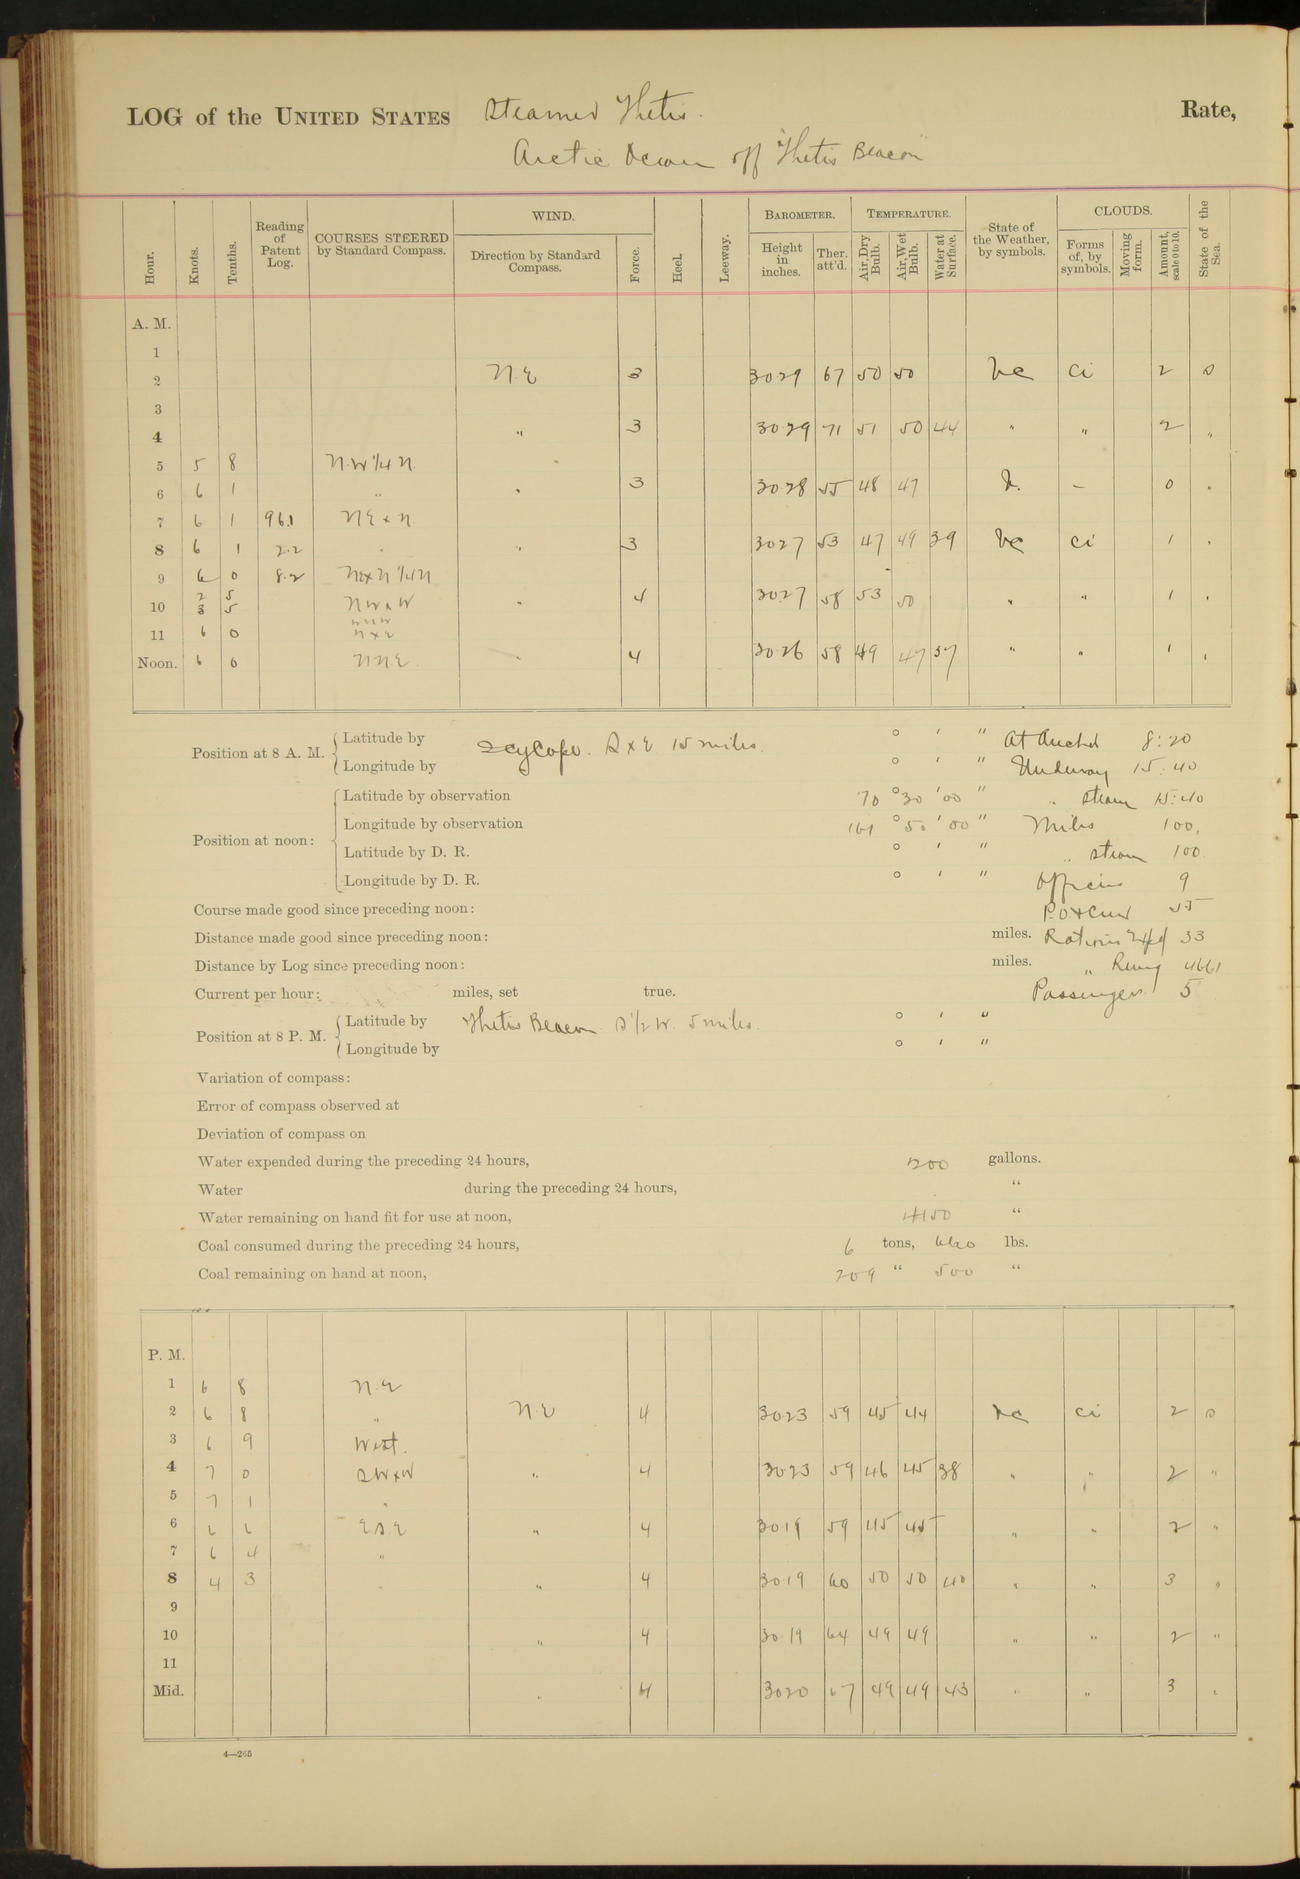 LOG of the UNITED STATES Steamer Thetis. Rate,
Arctic Ocean off "Thetis Beacon"
Hour. Knots. Tenths. Reading of Patent Log. COURSES STEERED by Standard Compass. WIND. Direction by Standard Compass. Force. Heel. Leeway. BAROMETER. Height in inches. Ther. att'd. TEMPERATURE. Air, Dry Bulb. Air, Wet Bulb. Water at Surface. State of the Weather, by symbols. CLOUDS. Forms of, by symbols. Moving form. Amount, scale 0 to 10. State of the Sea.
A. M.
1
2 N.E 3 30 29 67 50 50 bc Ci 2 S
3
4 " 3 30 29 71 51 50 44 " " 2 "
5 5 8 N.W 1/4 N
6 6 1 " " 3 30 28 55 48 47 b. – 0 "
7 6 1 96.1 NE x N
8 6 1 2.2 " " 3 30 27 53 47 49 39 bc Ci 1 "
9 6 0 8.2 NE x N 1/4 N
10 2 5 3 5 NW x W " 4 30 27 58 53 50 " " 1 "
NNW
11 6 0 N x E
Noon. 6 0 NNE " 4 30 26 58 49 47 37 " " 1 "
Position at 8 A. M. Latitude by Icy Cape. S x E 15 miles. ° ' " At Anchor 8:20
Longitude by ° ' " Underway 15:40
Position at noon: Latitude by observation 70 ° 30 ' 00 " " Steam 15:40
Longitude by observation 161 ° 50 ' 00 " Miles 100.
Latitude by D. R. ° ' " " steam 100.
Longitude by D. R. ° ' " Officers 9
Course made good since preceding noon: P.O & Crew 55
Distance made good since preceding noon: miles. Rations Exp'd 33
Distance by Log since preceding noon: miles. " Remg 4661
Current per hour: miles, set true. Passengers 5
Position at 8 P. M. Latitude by Thetis Beacon S 1/2 W. 5 miles. ° ' "
Longitude by ° ' "
Variation of compass:
Error of compass observed at
Deviation of compass on
Water expended during the preceding 24 hours, 1200 gallons.
Water during the preceding 24 hours, "
Water remaining on hand fit for use at noon, 4150 "
Coal consumed during the preceding 24 hours, 6 tons, 660 lbs.
Coal remaining on hand at noon, 209 " 500 "
P. M.
1 6 8 N.E
2 6 8 " N.E 4 30 23 59 45 44 bc Ci 2 S
3 6 9 West.
4 7 0 SW x W " 4 30 23 59 46 45 38 " " 2 "
5 7 1 "
6 6 6 E S.E " 4 30 19 59 45 45 " " 2 "
7 6 4 "
8 4 3 " " 4 30 19 60 50 50 40 " " 3 "
9
10 " 4 30 19 64 49 49 " " 2 "
11
Mid. " 4 30 20 67 49 49 43 " " 3 "
4—265